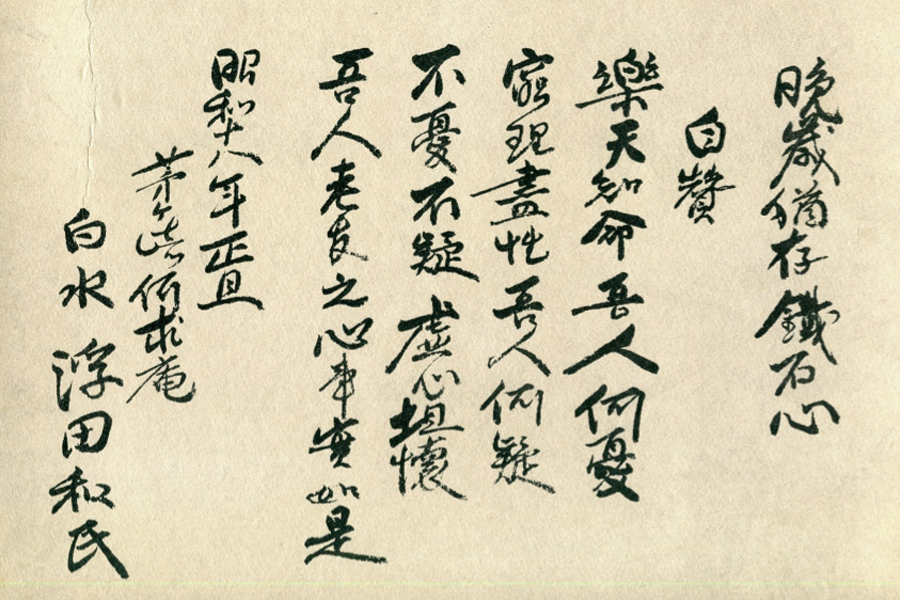 晩歳猶存鐵石心
自贊
樂天知命吾人何憂
窮理盡性吾人何疑
不憂不疑虚心坦懐
吾人老友之心事實如是
昭和十八年正旦
茅ヶ崎何求庵
白水 浮田和民